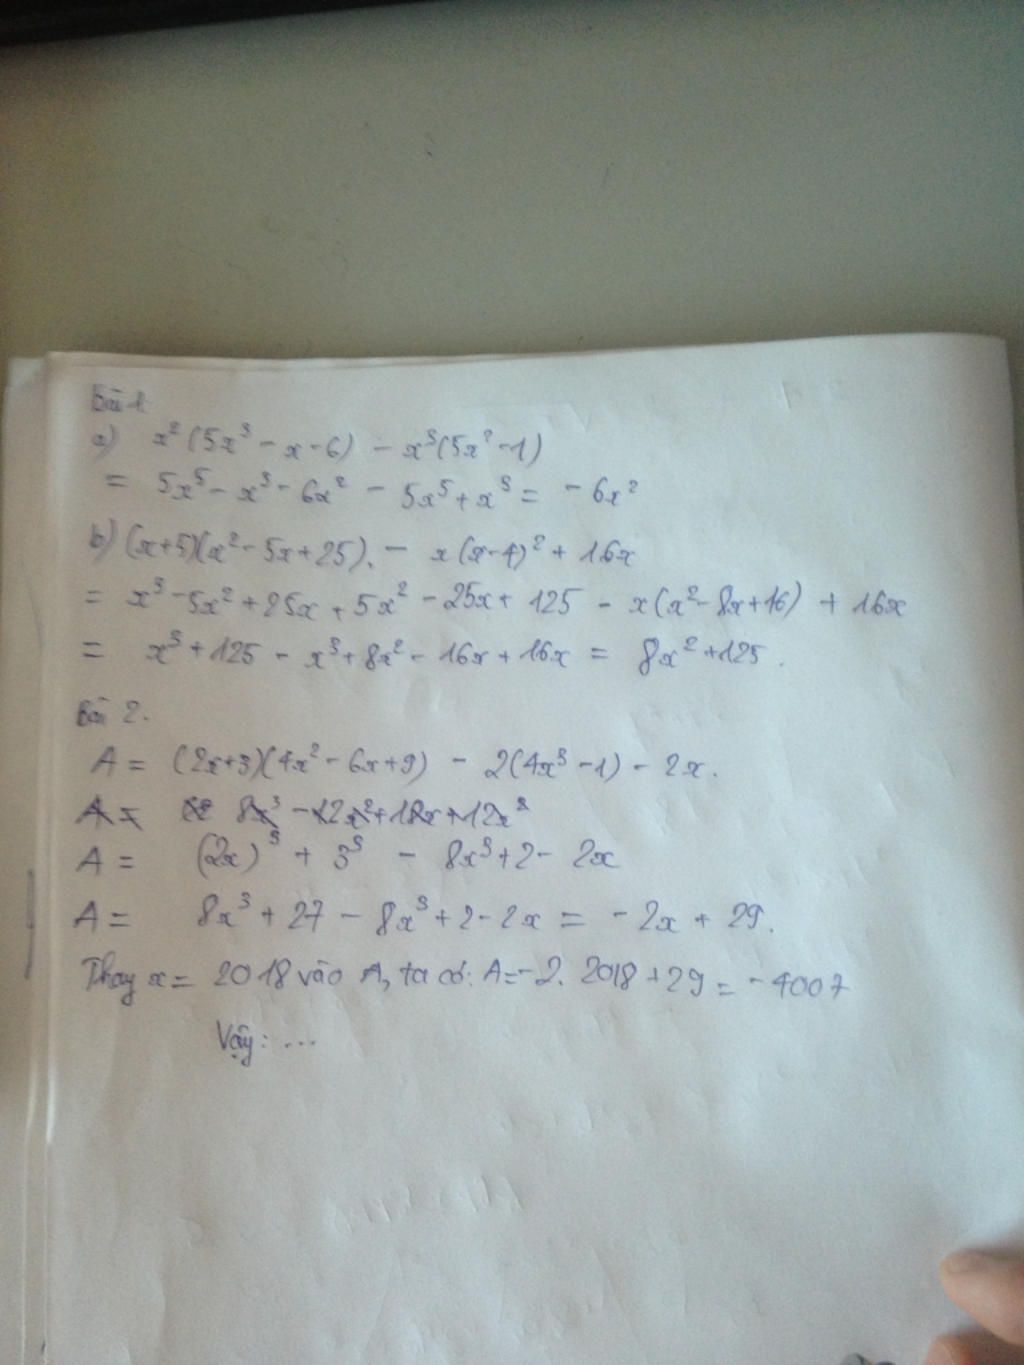 Bài 1
a) x²(5x³ - x - 6) - x³(5x² - 1)
= 5x⁵ - x³ - 6x² - 5x⁵ + x³ = - 6x²
b) (x+5)(x² - 5x + 25). - x(x-4)² + 16x
= x³ - 5x² + 25x + 5x² - 25x + 125 - x(x² - 8x + 16) + 16x
= x³ + 125 - x³ + 8x² - 16x + 16x = 8x² + 125.
Bài 2.
A = (2x+3)(4x² - 6x + 9) - 2(4x³ - 1) - 2x.
A = 8x³ - 12x² + 18x + 12x²
A = (2x)³ + 3³ - 8x³ + 2 - 2x
A = 8x³ + 27 - 8x³ + 2 - 2x = - 2x + 29.
Thay x = 2018 vào A, ta có: A = -2. 2018 + 29 = - 4007
Vậy: ...